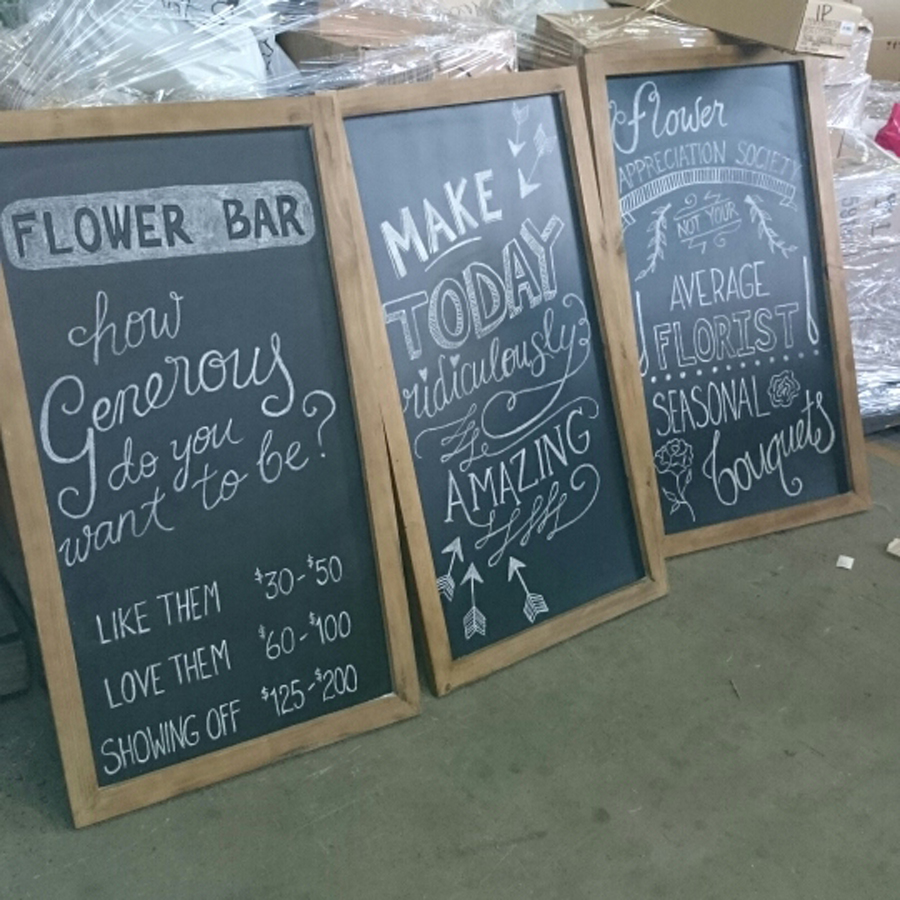 FLOWER BAR
how
Generous
do you
want to be?
LIKE THEM $30-$50
LOVE THEM $60-$100
SHOWING OFF $125-$200
MAKE
TODAY
ridiculously
AMAZING
Flower
APPRECIATION SOCIETY
NOT YOUR
AVERAGE
FLORIST
SEASONAL
bouquets
IP